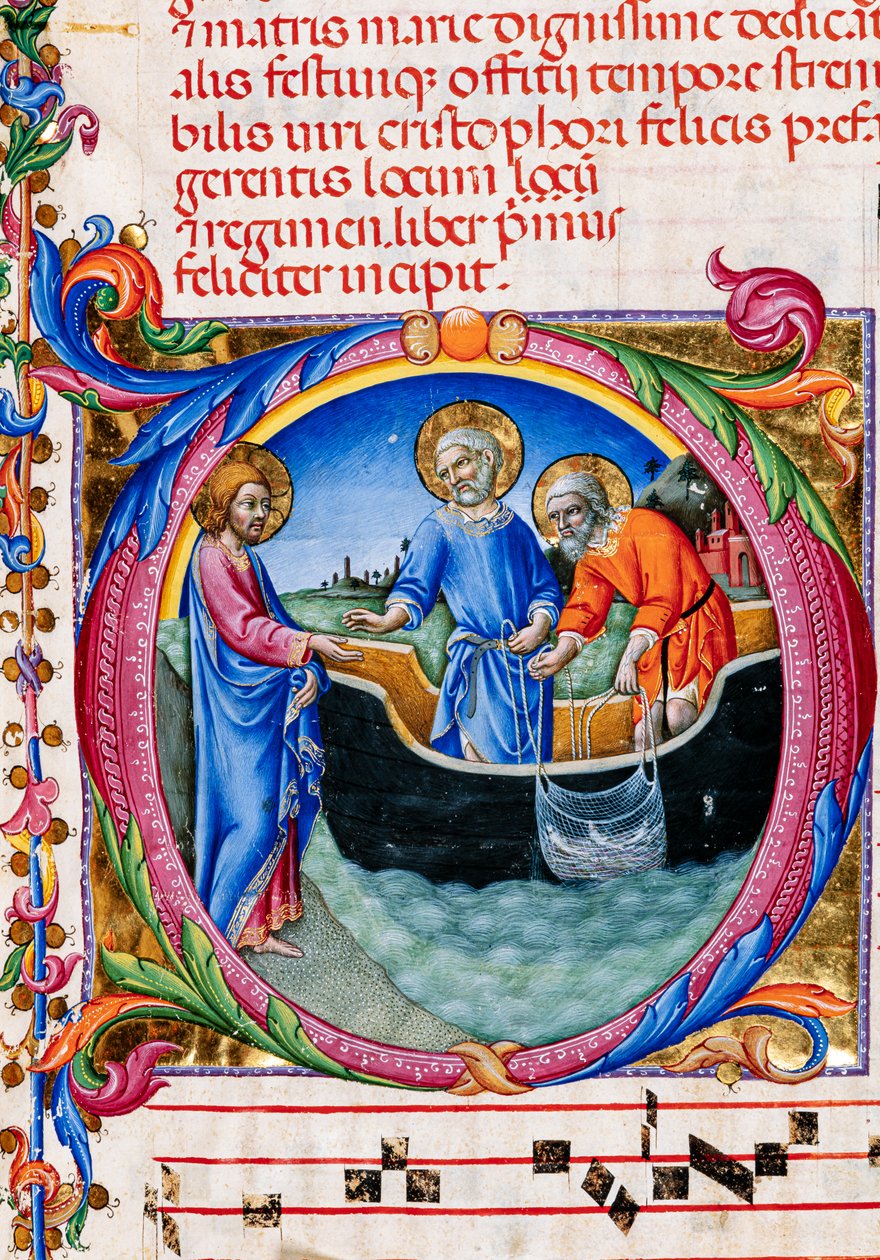 ⁊ matris marie dignissime dedicat
alis festiuiq; offitij tempore stren
bilis uiri cristophori felicis pref
gerentis locum
⁊ regimen. liber pͥmus
feliciter incipit.